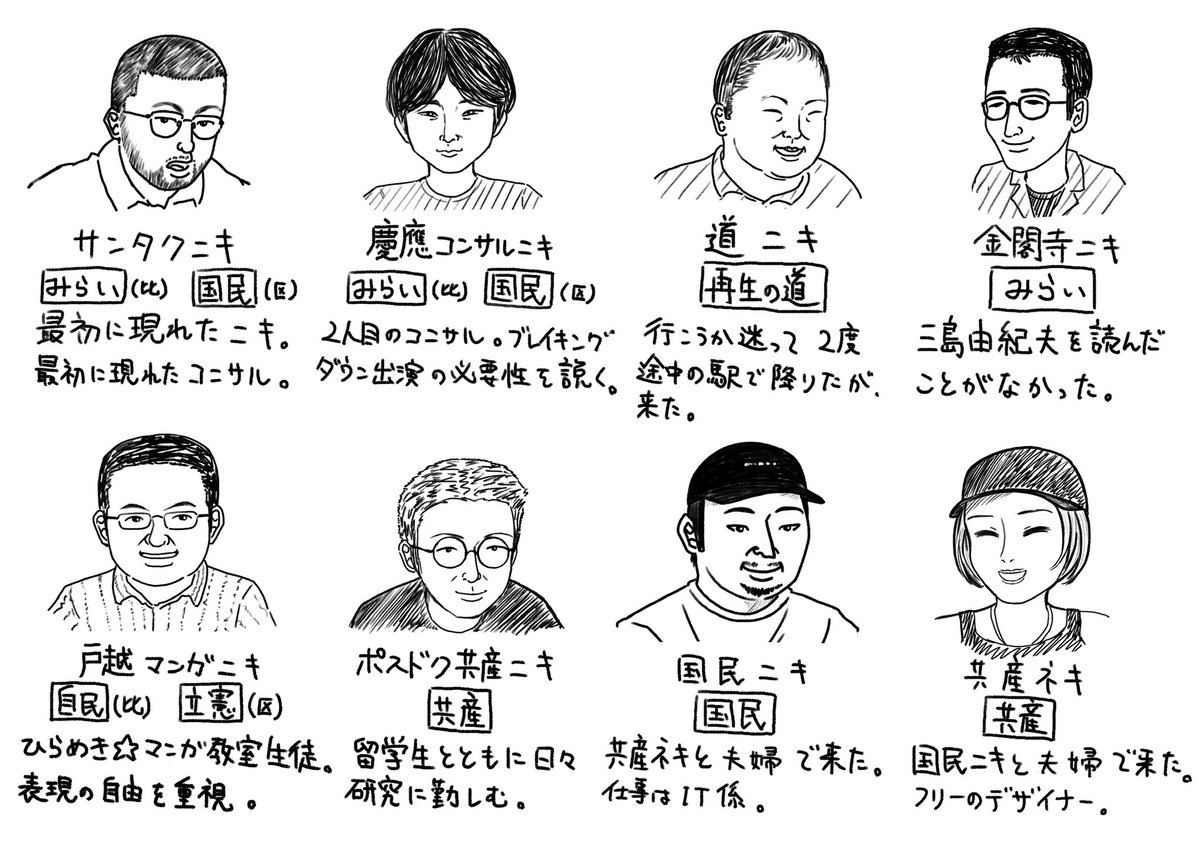 サンタクニキ
みらい(比) 国民(区)
最初に現れたニキ。
最初に現れたコンサル。
慶應コンサルニキ
みらい(比) 国民(区)
2人目のコンサル。ブレイキング
ダウン出演の必要性を説く。
道ニキ
再生の道
行こうか迷って2度
途中の駅で降りたが、
来た。
金閣寺ニキ
みらい
三島由紀夫を読んだ
ことがなかった。
戸越マンガニキ
自民(比) 立憲(区)
ひらめき☆マンガ教室生徒。
表現の自由を重視。
ポスドク共産ニキ
共産
留学生とともに日々
研究に勤しむ。
国民ニキ
国民
共産ネキと夫婦で来た。
仕事はIT係。
共産ネキ
共産
国民ニキと夫婦で来た。
フリーのデザイナー。